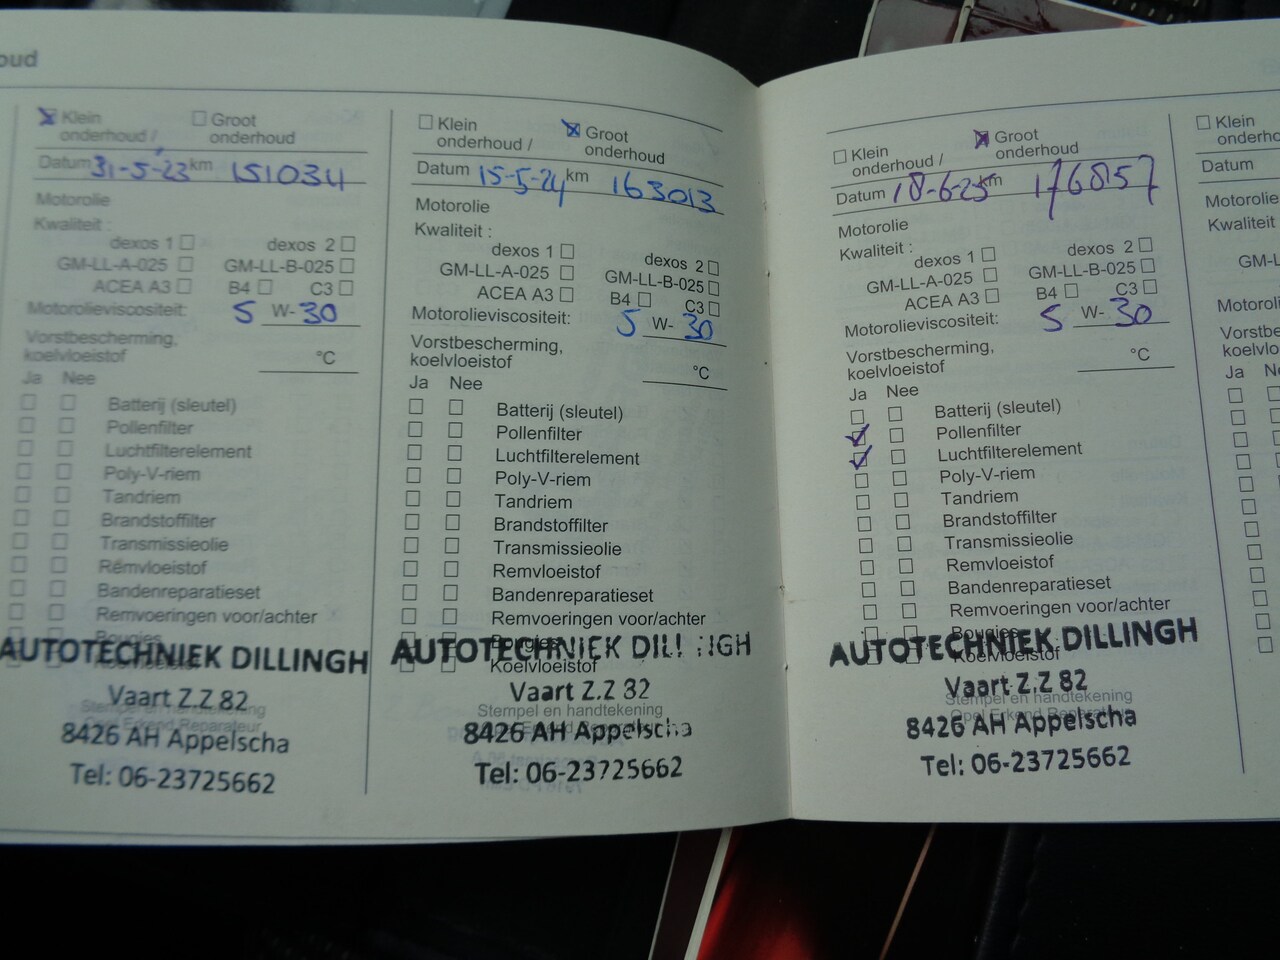 oud
Klein onderhoud / Groot onderhoud
Datum 31-5-23 km 151034
Motorolie
Kwaliteit :
dexos 1 dexos 2
GM-LL-A-025 GM-LL-B-025
ACEA A3 B4 C3
Motorolieviscositeit: 5 W- 30
Vorstbescherming,
koelvloeistof °C
Ja Nee
Batterij (sleutel)
Pollenfilter
Luchtfilterelement
Poly-V-riem
Tandriem
Brandstoffilter
Transmissieolie
Remvloeistof
Bandenreparatieset
Remvoeringen voor/achter
Bougies
AUTOTECHNIEK DILLINGH
Vaart Z.Z 82
Stempel en handtekening
Opel Erkend Reparateur
8426 AH Appelscha
Tel: 06-23725662
Klein onderhoud / Groot onderhoud
Datum 15-5-24 km 163013
Motorolie
Kwaliteit :
dexos 1 dexos 2
GM-LL-A-025 GM-LL-B-025
ACEA A3 B4 C3
Motorolieviscositeit: 5 W- 30
Vorstbescherming,
koelvloeistof °C
Ja Nee
Batterij (sleutel)
Pollenfilter
Luchtfilterelement
Poly-V-riem
Tandriem
Brandstoffilter
Transmissieolie
Remvloeistof
Bandenreparatieset
Remvoeringen voor/achter
Bougies
AUTOTECHNIEK DILLINGH
Koelvloeistof
Vaart Z.Z 82
Stempel en handtekening
Opel Erkend Reparateur
8426 AH Appelscha
Tel: 06-23725662
Klein onderhoud / Groot onderhoud
Datum 18-6-25 km 176857
Motorolie
Kwaliteit :
dexos 1 dexos 2
GM-LL-A-025 GM-LL-B-025
ACEA A3 B4 C3
Motorolieviscositeit: 5 W- 30
Vorstbescherming,
koelvloeistof °C
Ja Nee
Batterij (sleutel)
Pollenfilter
Luchtfilterelement
Poly-V-riem
Tandriem
Brandstoffilter
Transmissieolie
Remvloeistof
Bandenreparatieset
Remvoeringen voor/achter
Bougies
AUTOTECHNIEK DILLINGH
Koelvloeistof
Vaart Z.Z 82
Stempel en handtekening
Opel Erkend Reparateur
8426 AH Appelscha
Tel: 06-23725662
Klein
onderho
Datum
Motorolie
Kwaliteit
GM-L
Motoroli
Vorstbe
koelvlo
Ja Ne